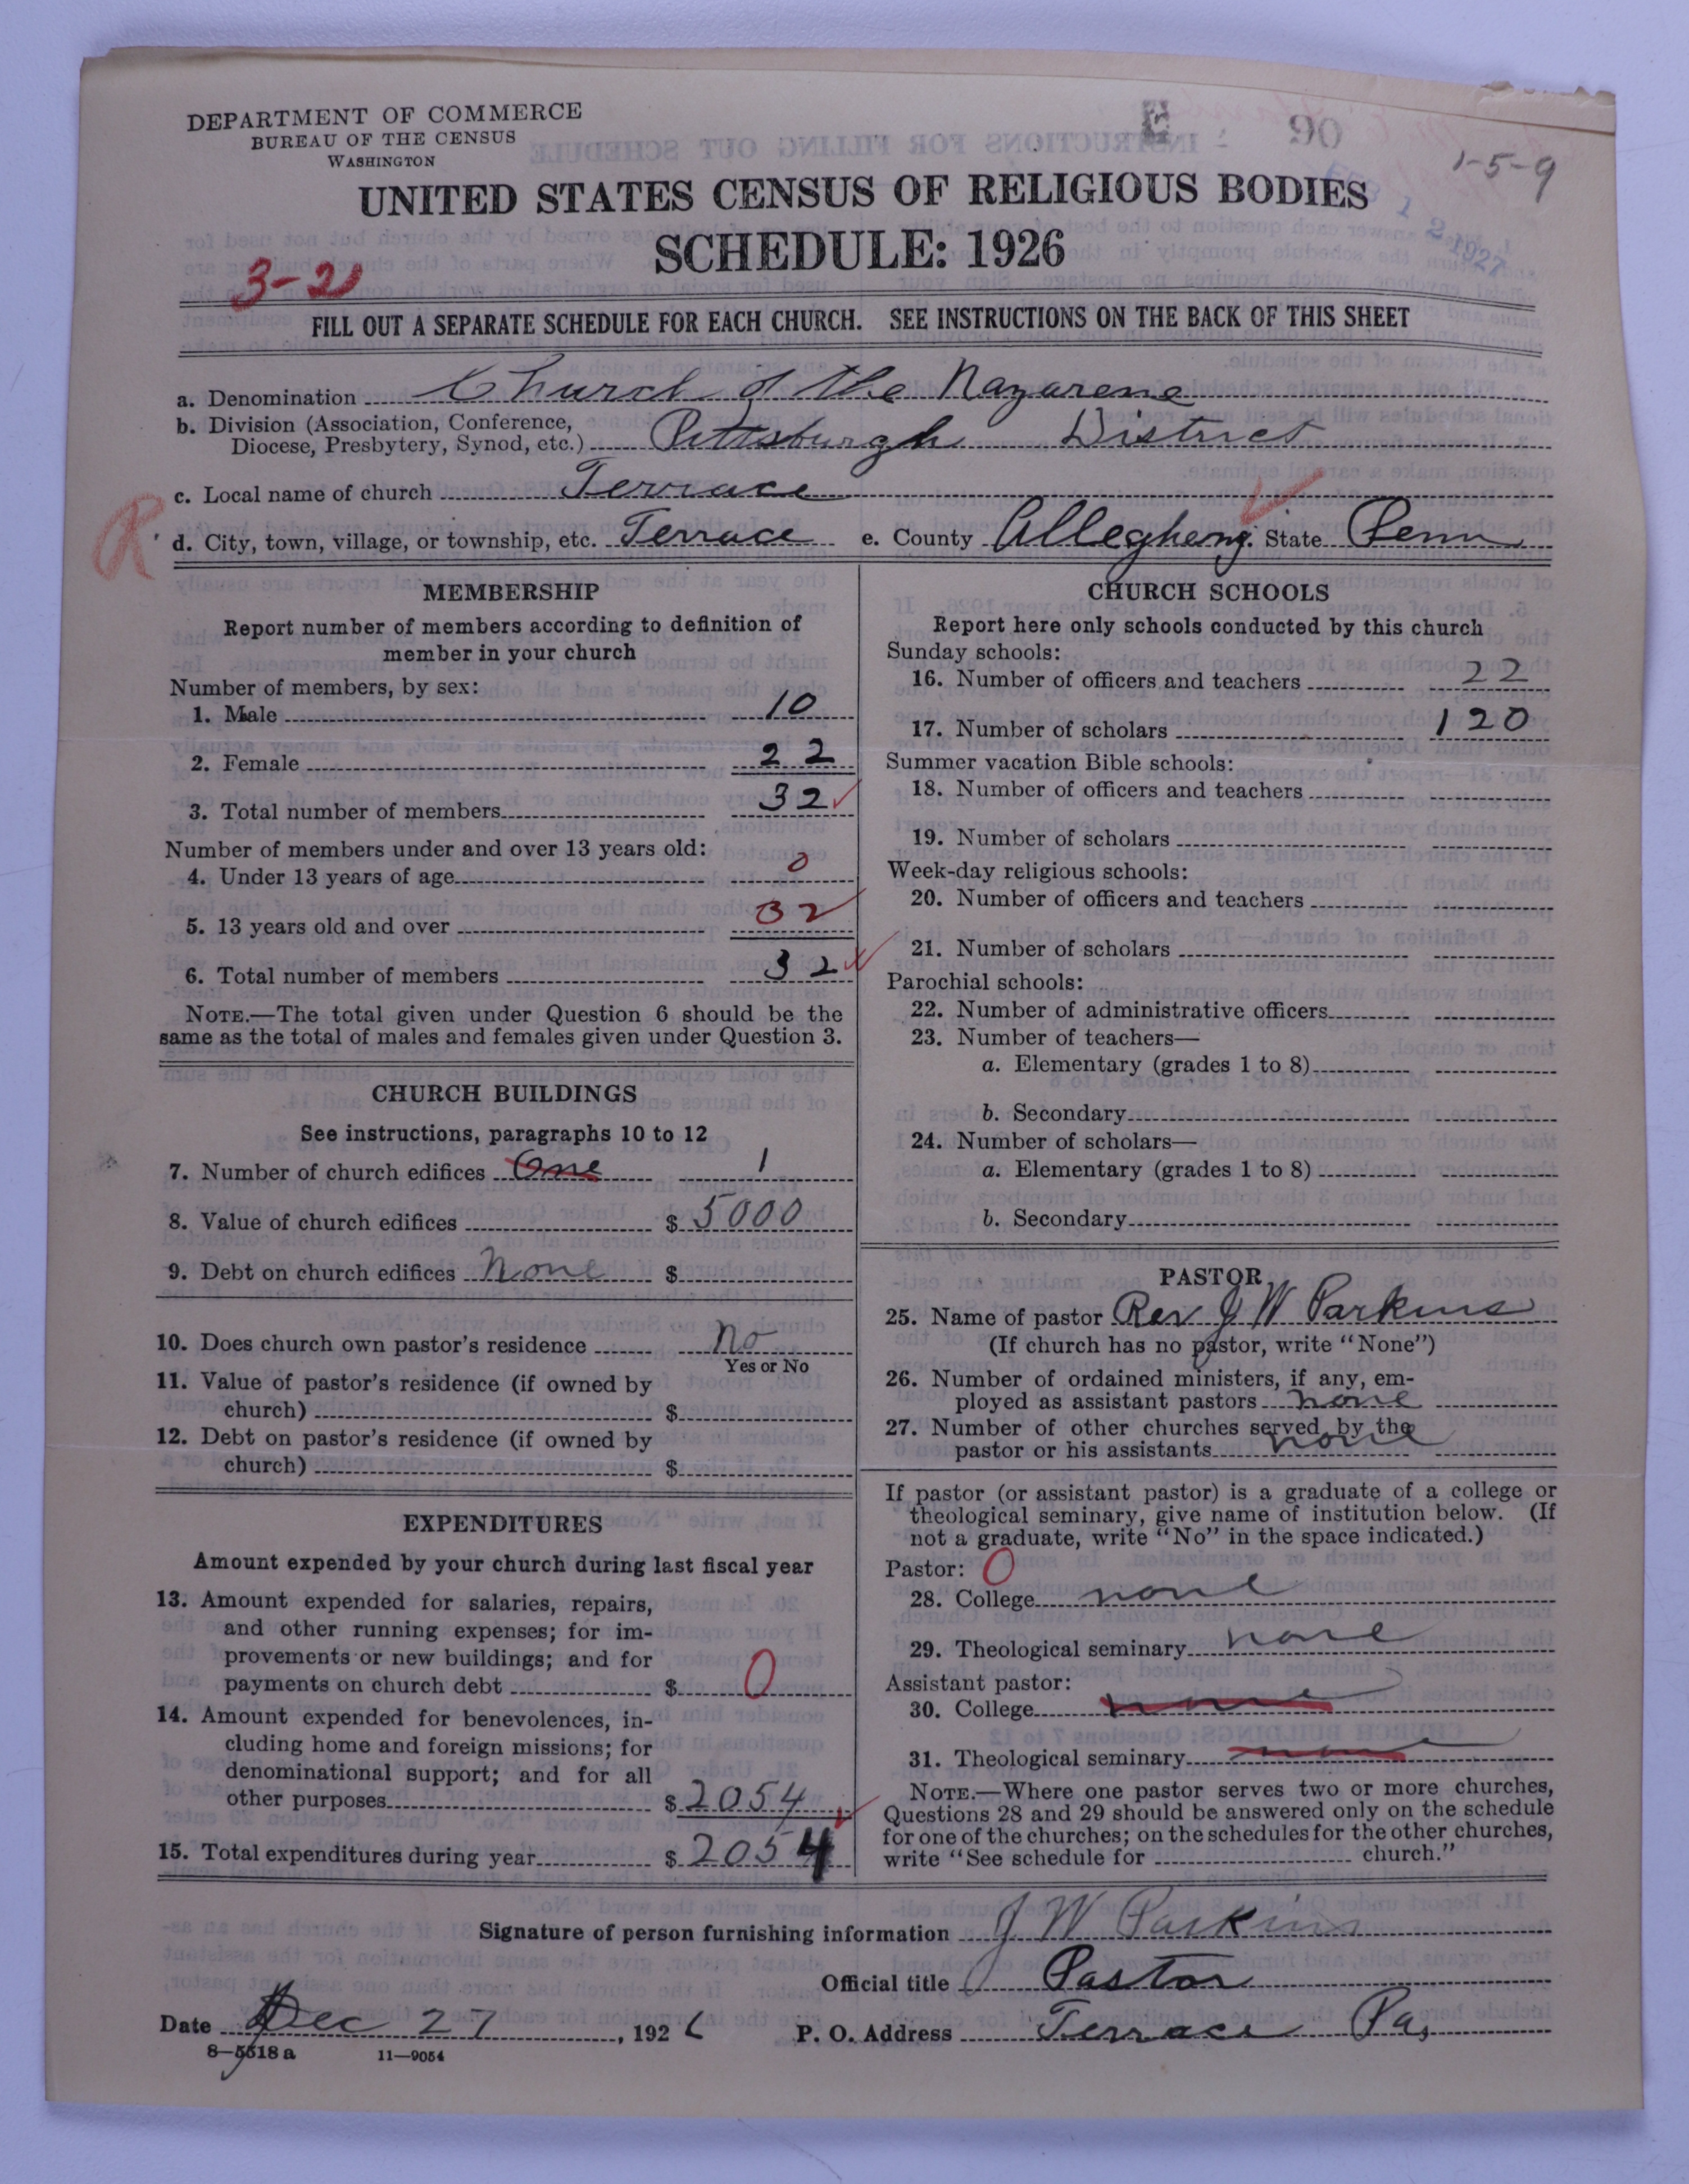 DEPARTMENT OF COMMERCE
BUREAU OF THE CENSUS
WASHINGTON
90
1-5-9
UNITED STATES CENSUS OF RELIGIOUS BODIES
SCHEDULE: 1926
1 2 1927
3-21
FILL OUT A SEPARATE SCHEDULE FOR EACH CHURCH. SEE INSTRUCTIONS ON THE BACK OF THIS SHEET
a. Denomination Church of the Nazarene
b. Division (Association, Conference,
Diocese, Presbytery, Synod, etc.) Pittsburgh District
c. Local name of church Terrace
R
d. City, town, village, or township, etc. Terrace e. County Allegheny. State Penn
MEMBERSHIP
Report number of members according to definition of
member in your church
Number of members, by sex:
1. Male 10
2. Female 22
3. Total number of members 32
Number of members under and over 13 years old:
4. Under 13 years of age 0
5. 13 years old and over 32
6. Total number of members 32
NOTE.—The total given under Question 6 should be the
same as the total of males and females given under Question 3.
CHURCH BUILDINGS
See instructions, paragraphs 10 to 12
7. Number of church edifices One 1
8. Value of church edifices $ 5000
9. Debt on church edifices None $
10. Does church own pastor's residence No
Yes or No
11. Value of pastor's residence (if owned by
church) $
12. Debt on pastor's residence (if owned by
church) $
EXPENDITURES
Amount expended by your church during last fiscal year
13. Amount expended for salaries, repairs,
and other running expenses; for im-
provements or new buildings; and for
payments on church debt $ 0
14. Amount expended for benevolences, in-
cluding home and foreign missions; for
denominational support; and for all
other purposes $ 2054
15. Total expenditures during year $ 2054
CHURCH SCHOOLS
Report here only schools conducted by this church
Sunday schools:
16. Number of officers and teachers 22
17. Number of scholars 120
Summer vacation Bible schools:
18. Number of officers and teachers
19. Number of scholars
Week-day religious schools:
20. Number of officers and teachers
21. Number of scholars
Parochial schools:
22. Number of administrative officers
23. Number of teachers—
a. Elementary (grades 1 to 8)
b. Secondary
24. Number of scholars—
a. Elementary (grades 1 to 8)
b. Secondary
PASTOR
25. Name of pastor Rev J W Parkins
(If church has no pastor, write "None")
26. Number of ordained ministers, if any, em-
ployed as assistant pastors none
27. Number of other churches served by the
pastor or his assistants none
If pastor (or assistant pastor) is a graduate of a college or
theological seminary, give name of institution below. (If
not a graduate, write "No" in the space indicated.)
Pastor: 0
28. College none
29. Theological seminary none
Assistant pastor:
30. College none
31. Theological seminary none
NOTE.—Where one pastor serves two or more churches,
Questions 28 and 29 should be answered only on the schedule
for one of the churches; on the schedules for the other churches,
write "See schedule for church."
Signature of person furnishing information J W Parkins
Official title Pastor
Date Dec 27, 1926 P. O. Address Terrace Pa.
8—5518 a 11—9054